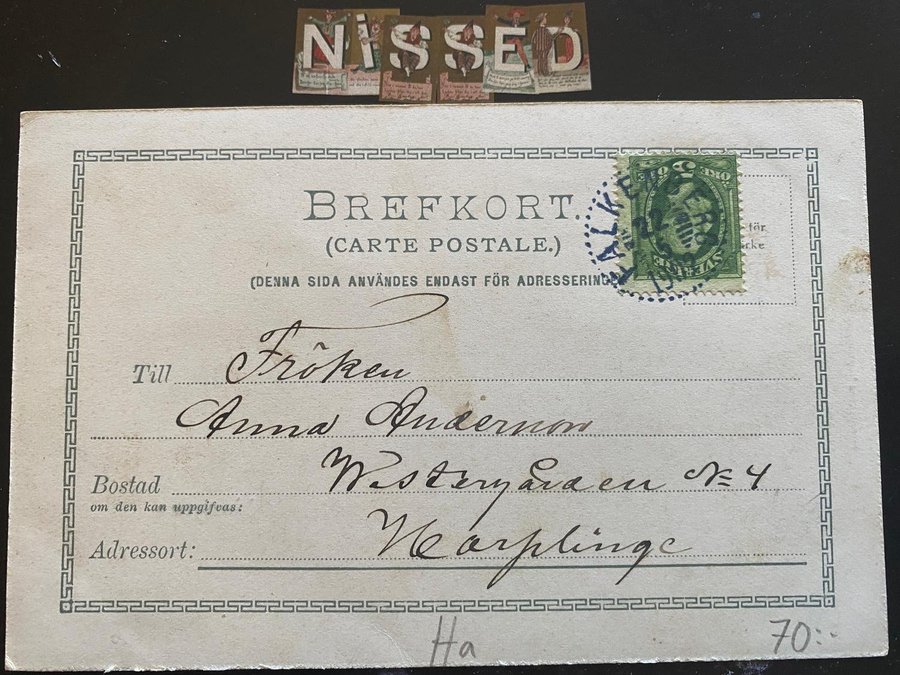 NiSSED
BREFKORT.
(CARTE POSTALE.)
(DENNA SIDA ANVÄNDES ENDAST FÖR ADRESSERING
5 ÖRE
SVERIGE
FALKENBERG
22
för
rke
Till Fröken
Anna Andersson
Bostad Westergården No 4
om den kan uppgifvas:
Adressort: Harplinge
Ha 70:-